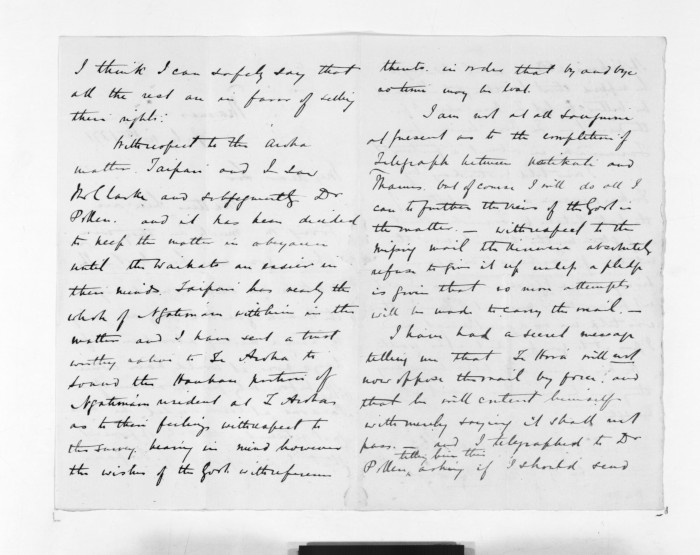 I think I can safely say that
all the rest are in favor of selling
their rights.
With respect to the Aroha
matter. Taipari and I saw
Mr Clarke and subsequently Dr
Pollen. and it has been decided
to keep the matter in abeyance
until the Waikato are easier in
their minds. Taipari has nearly the
whole of Ngatimaru with him in this
matter and I have sent a trust
worthy native to Te Aroha to
sound the Hauhau portion of
Ngatimaru resident at Te Aroha
as to their feelings with respect to
the survey bearing in mind however
the wishes of the Govt with reference
thereto. in order that by and bye
no time may be lost.
I am not at all sanguine
at present as to the completion of
Telegraph between Katikati and
Thames. but of course I will do all I
can to further the views of the Govt in
the matter. — with respect to the
missing mail the absolutely
refuse to give it up unless a pledge
is given that no more attempts
will be made to carry the mail. —
I have had a secret message
telling me that Te Hira will not
now oppose the mail by force. and
that he will content himself
with merely saying it shall not
pass. — and I telegraphed to Dr
Pollen telling him this asking if I should send